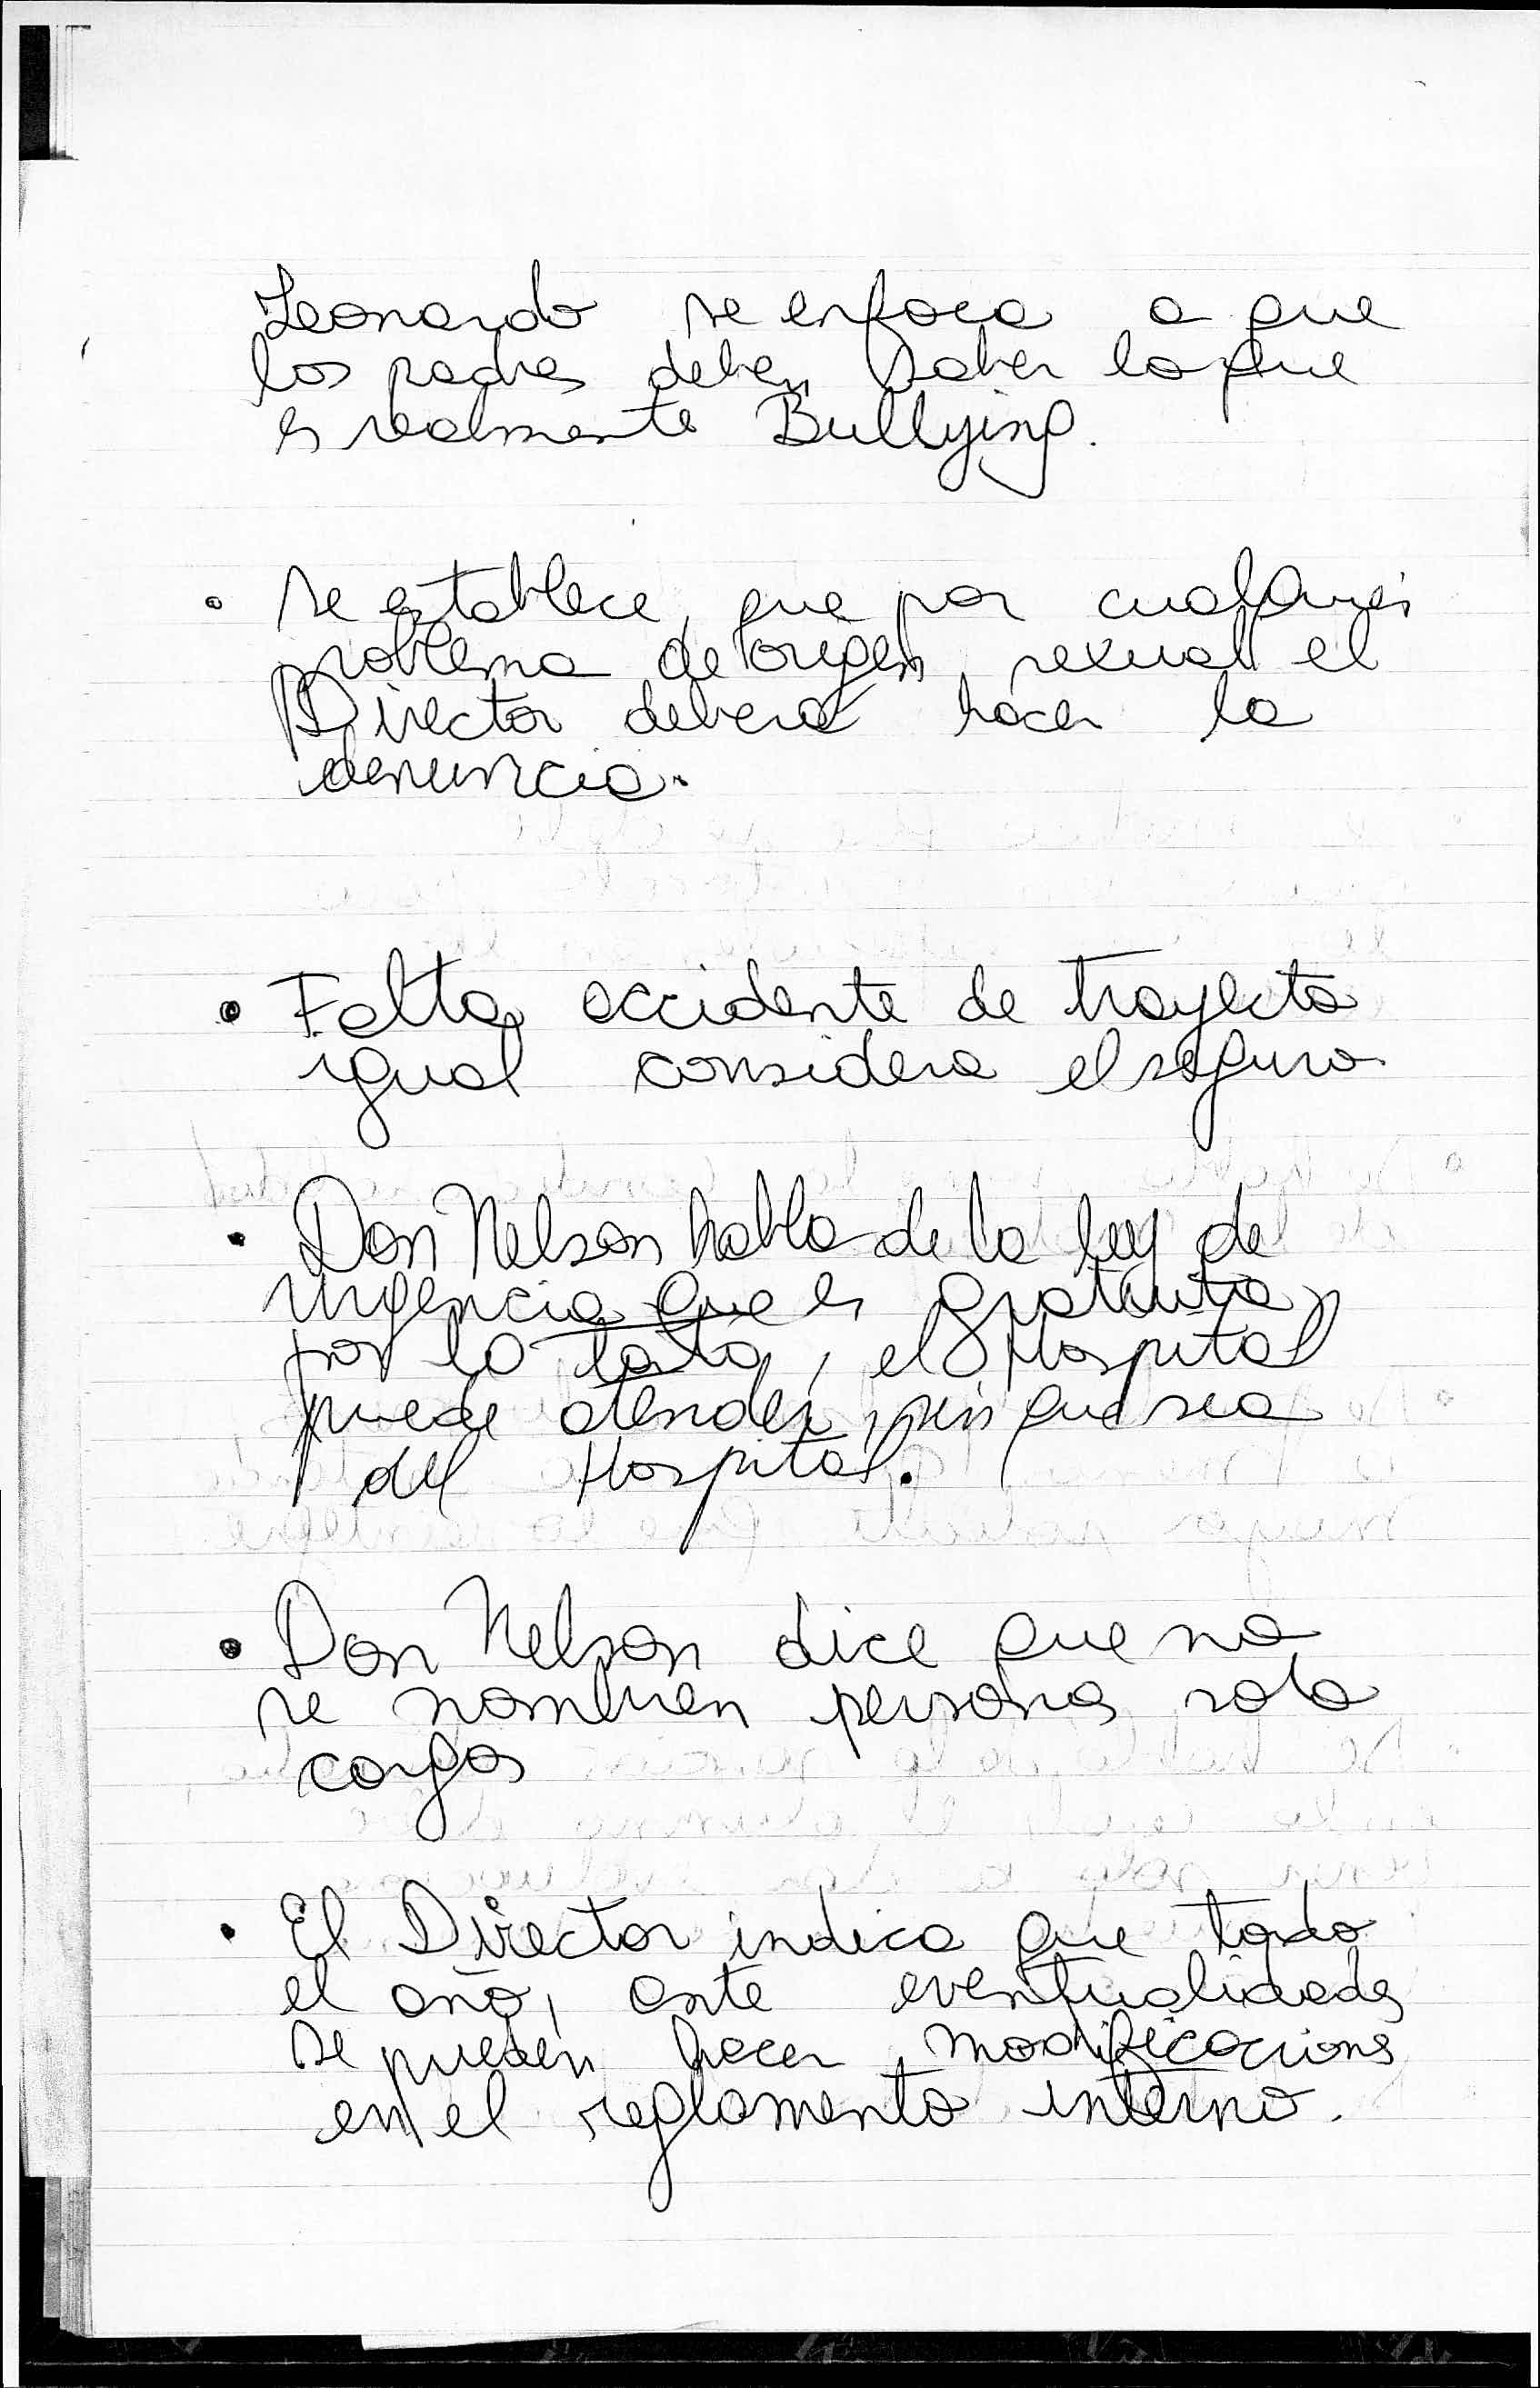 Leonardo se enfoca a que
los padres deben saber lo que
es realmente Bullying.
• Se establece que por cualquier
problema de origen sexual el
Director deberá hacer la
denuncia.
• Falta accidente de trayecto
igual considera el seguro
• Don Nelson habla de la ley de
urgencia que es gratuita
por lo tanto, el Hospital
puede atender sin que sea
del Hospital.
• Don Nelson dice que no
se nombren personas solo
cargos
• El Director indica que todo
el año, ante eventualidades
se pueden hacer modificaciones
en el reglamento interno.